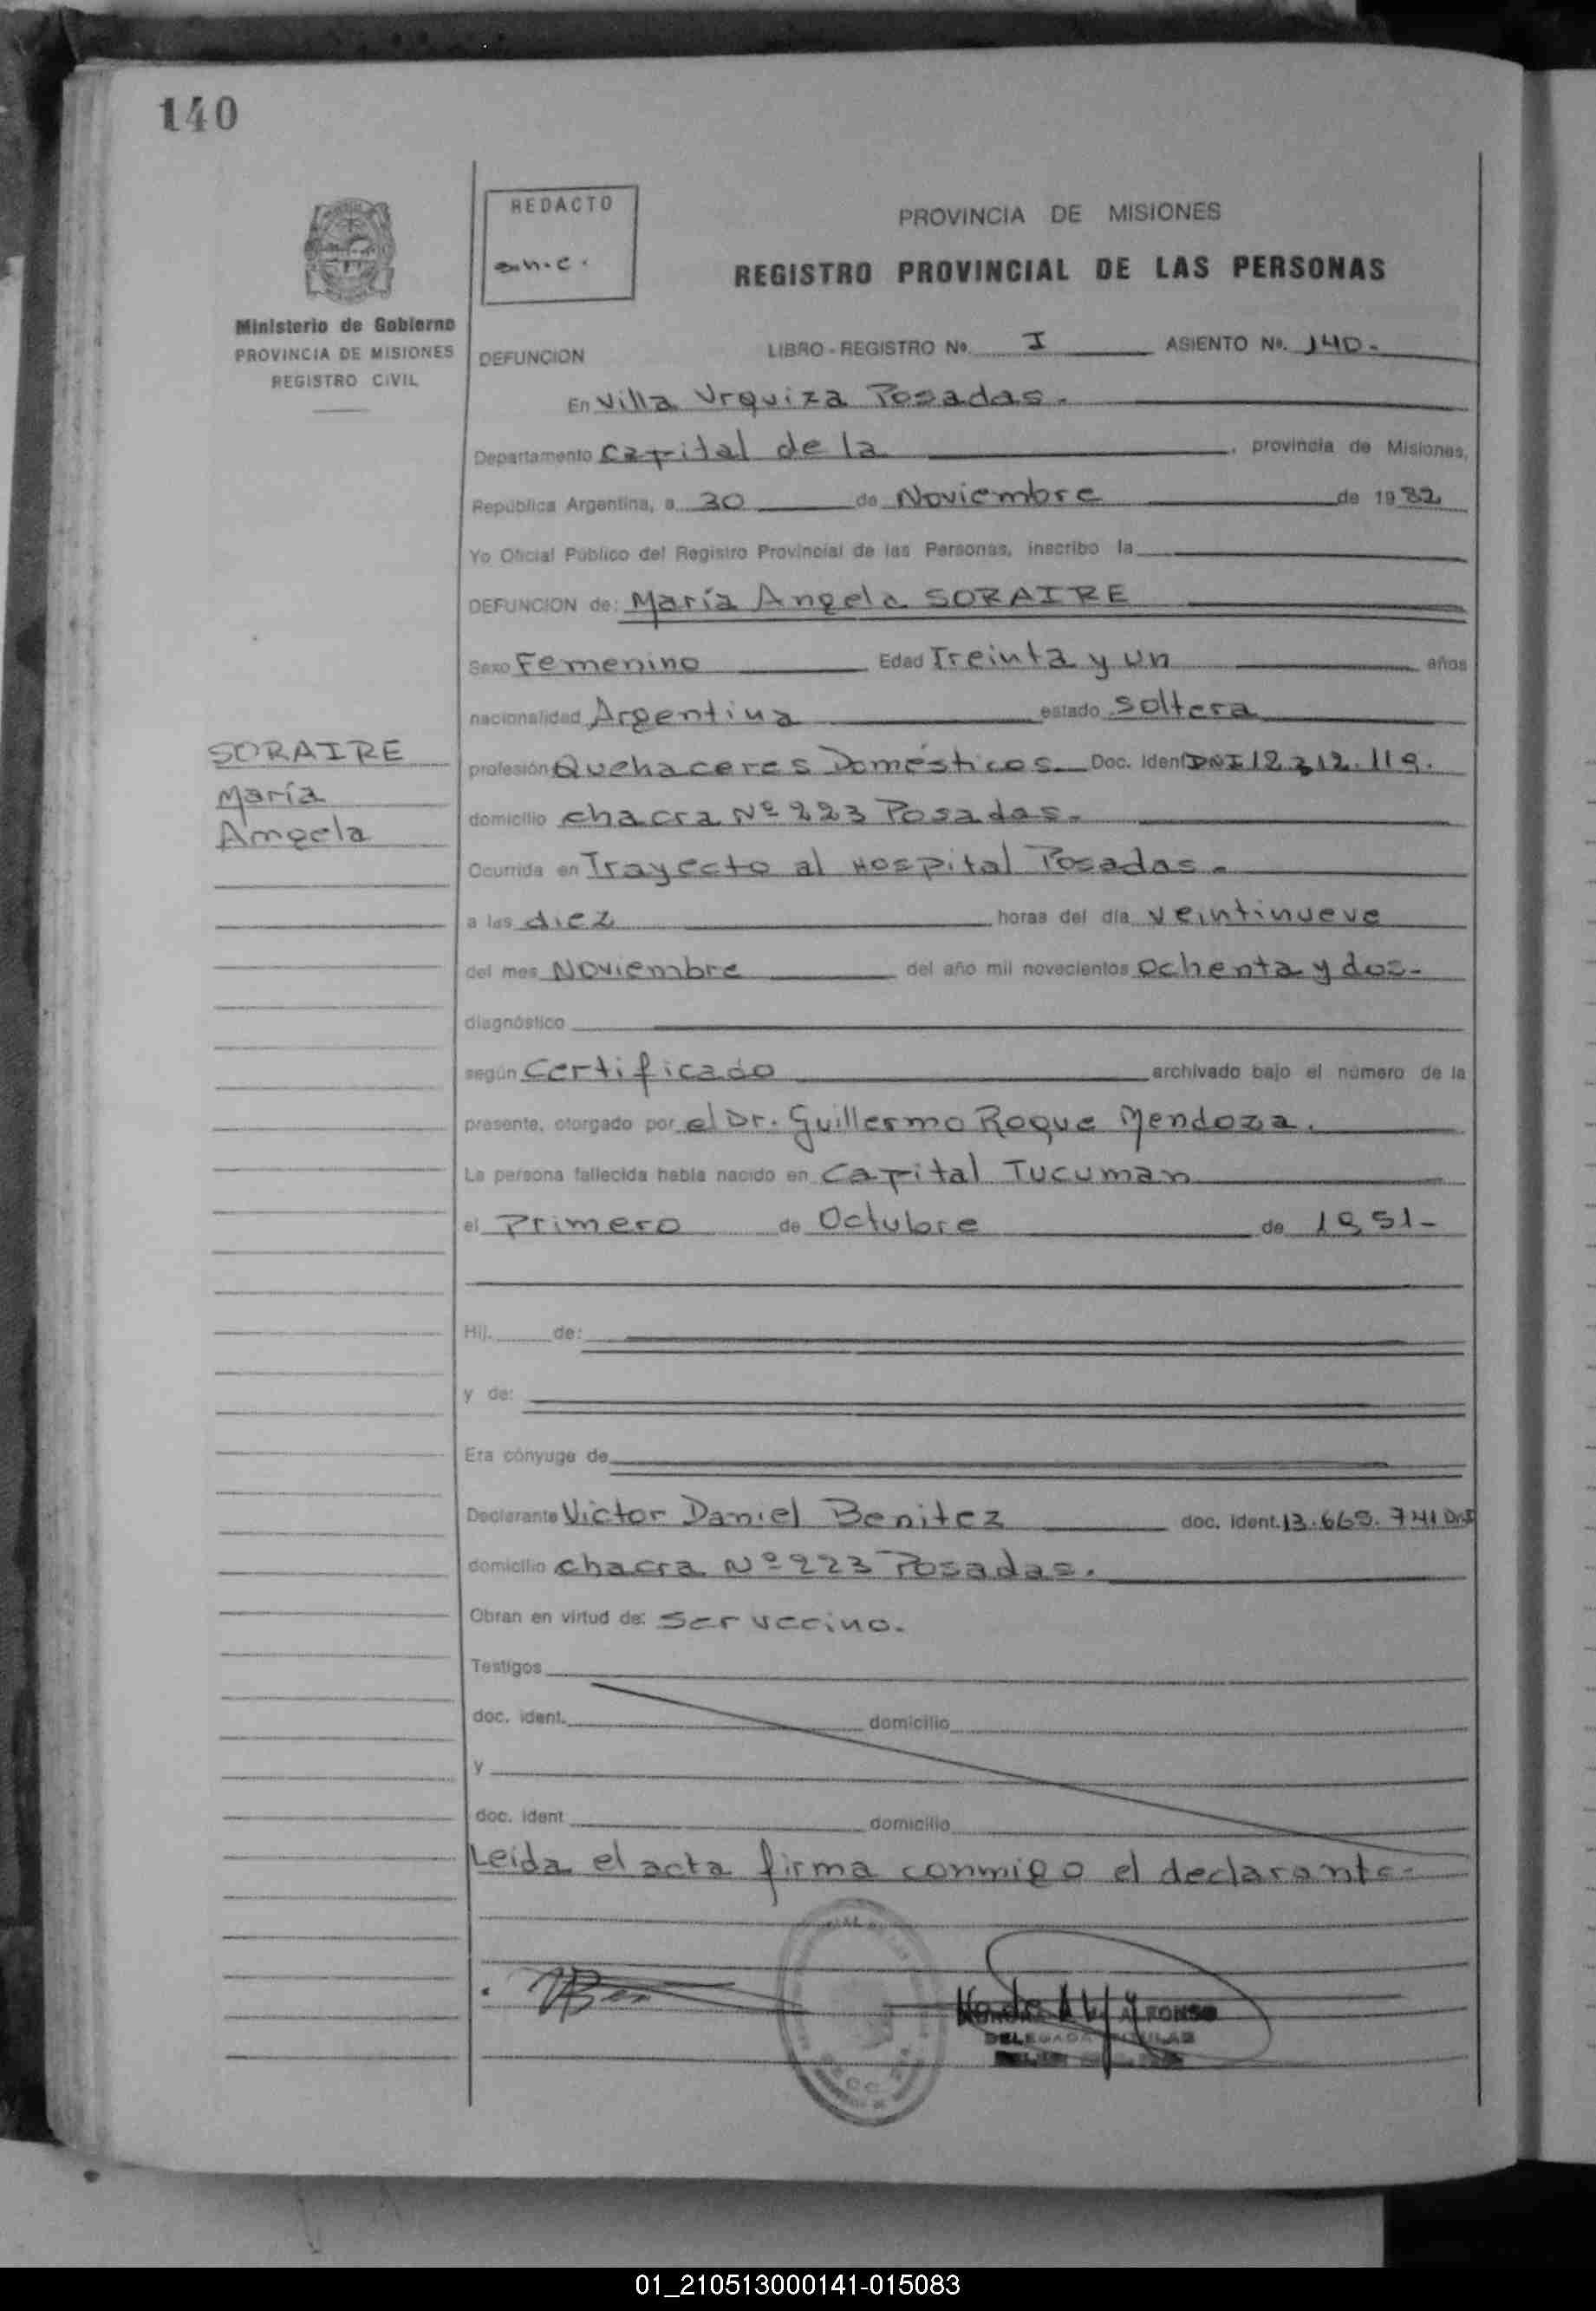 140
REDACTO
PROVINCIA DE MISIONES
REGISTRO PROVINCIAL DE LAS PERSONAS
Ministerio de Gobierno
PROVINCIA DE MISIONES
REGISTRO CIVIL
DEFUNCION LIBRO - REGISTRO No. I ASIENTO No. 140.-
En Villa Urquiza Posadas.
Departamento Capital de la , provincia de Misiones,
República Argentina, a 30 de Noviembre de 1982
Yo Oficial Público del Registro Provincial de las Personas, inscribo la
DEFUNCION de: María Angela SORAIRE
Sexo Femenino Edad Treinta y un años
nacionalidad Argentina estado soltera
SORAIRE
María
Angela
profesión Quehaceres Domésticos Doc. Ident DNI 12.312.119.
domicilio chacra Nº 223 Posadas.
Ocurrida en Trayecto al Hospital Posadas.
a las diez horas del día veintinueve
del mes Noviembre del año mil novecientos ochenta y dos.
diagnóstico
según Certificado archivado bajo el número de la
presente, otorgado por el Dr. Guillermo Roque Mendoza.
La persona fallecida había nacido en Capital Tucuman
el Primero de Octubre de 1951-
Hij. de:
y de:
Era cónyuge de
Declarante Victor Daniel Benitez doc. ident. 13.665.741 DNI
domicilio chacra Nº 223 Posadas.
Obran en virtud de: ser vecino.
Testigos
doc. ident. domicilio
y
doc. ident domicilio
Leída el acta firma conmigo el declarante.
ALFONSO
DELEGADA TITULAR
01_210513000141-015083